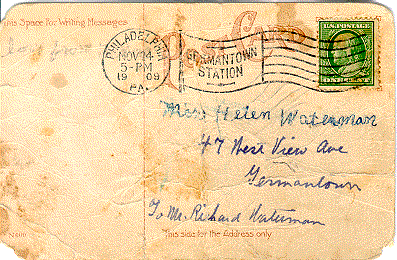 This Space for Writing Messages
CARD
PHILADELPHIA
NOV 24
5-PM
1909
PA.
GERMANTOWN
STATION
U.S. POSTAGE
ONE CENT
Miss Helen Waterman
47 West View Ave
Germantown
To Mr. Richard Waterman
This side for the Address only